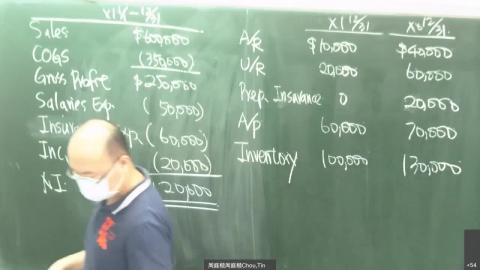 X1 1/1 - 12/31
Sales $600,000
COGS (350,000)
Gross Profit $250,000
Salaries Exp (50,000)
Insur xp. (60,000)
Inc (20,000)
NI 120,000
X1 12/31 X0 12/31
A/R $10,000 $40,000
U/R 20,000 60,000
Prep Insurance 0 20,000
A/P 60,000 70,000
Inventory 100,000 130,000
周庭楷周庭楷Chou,Tin
+54